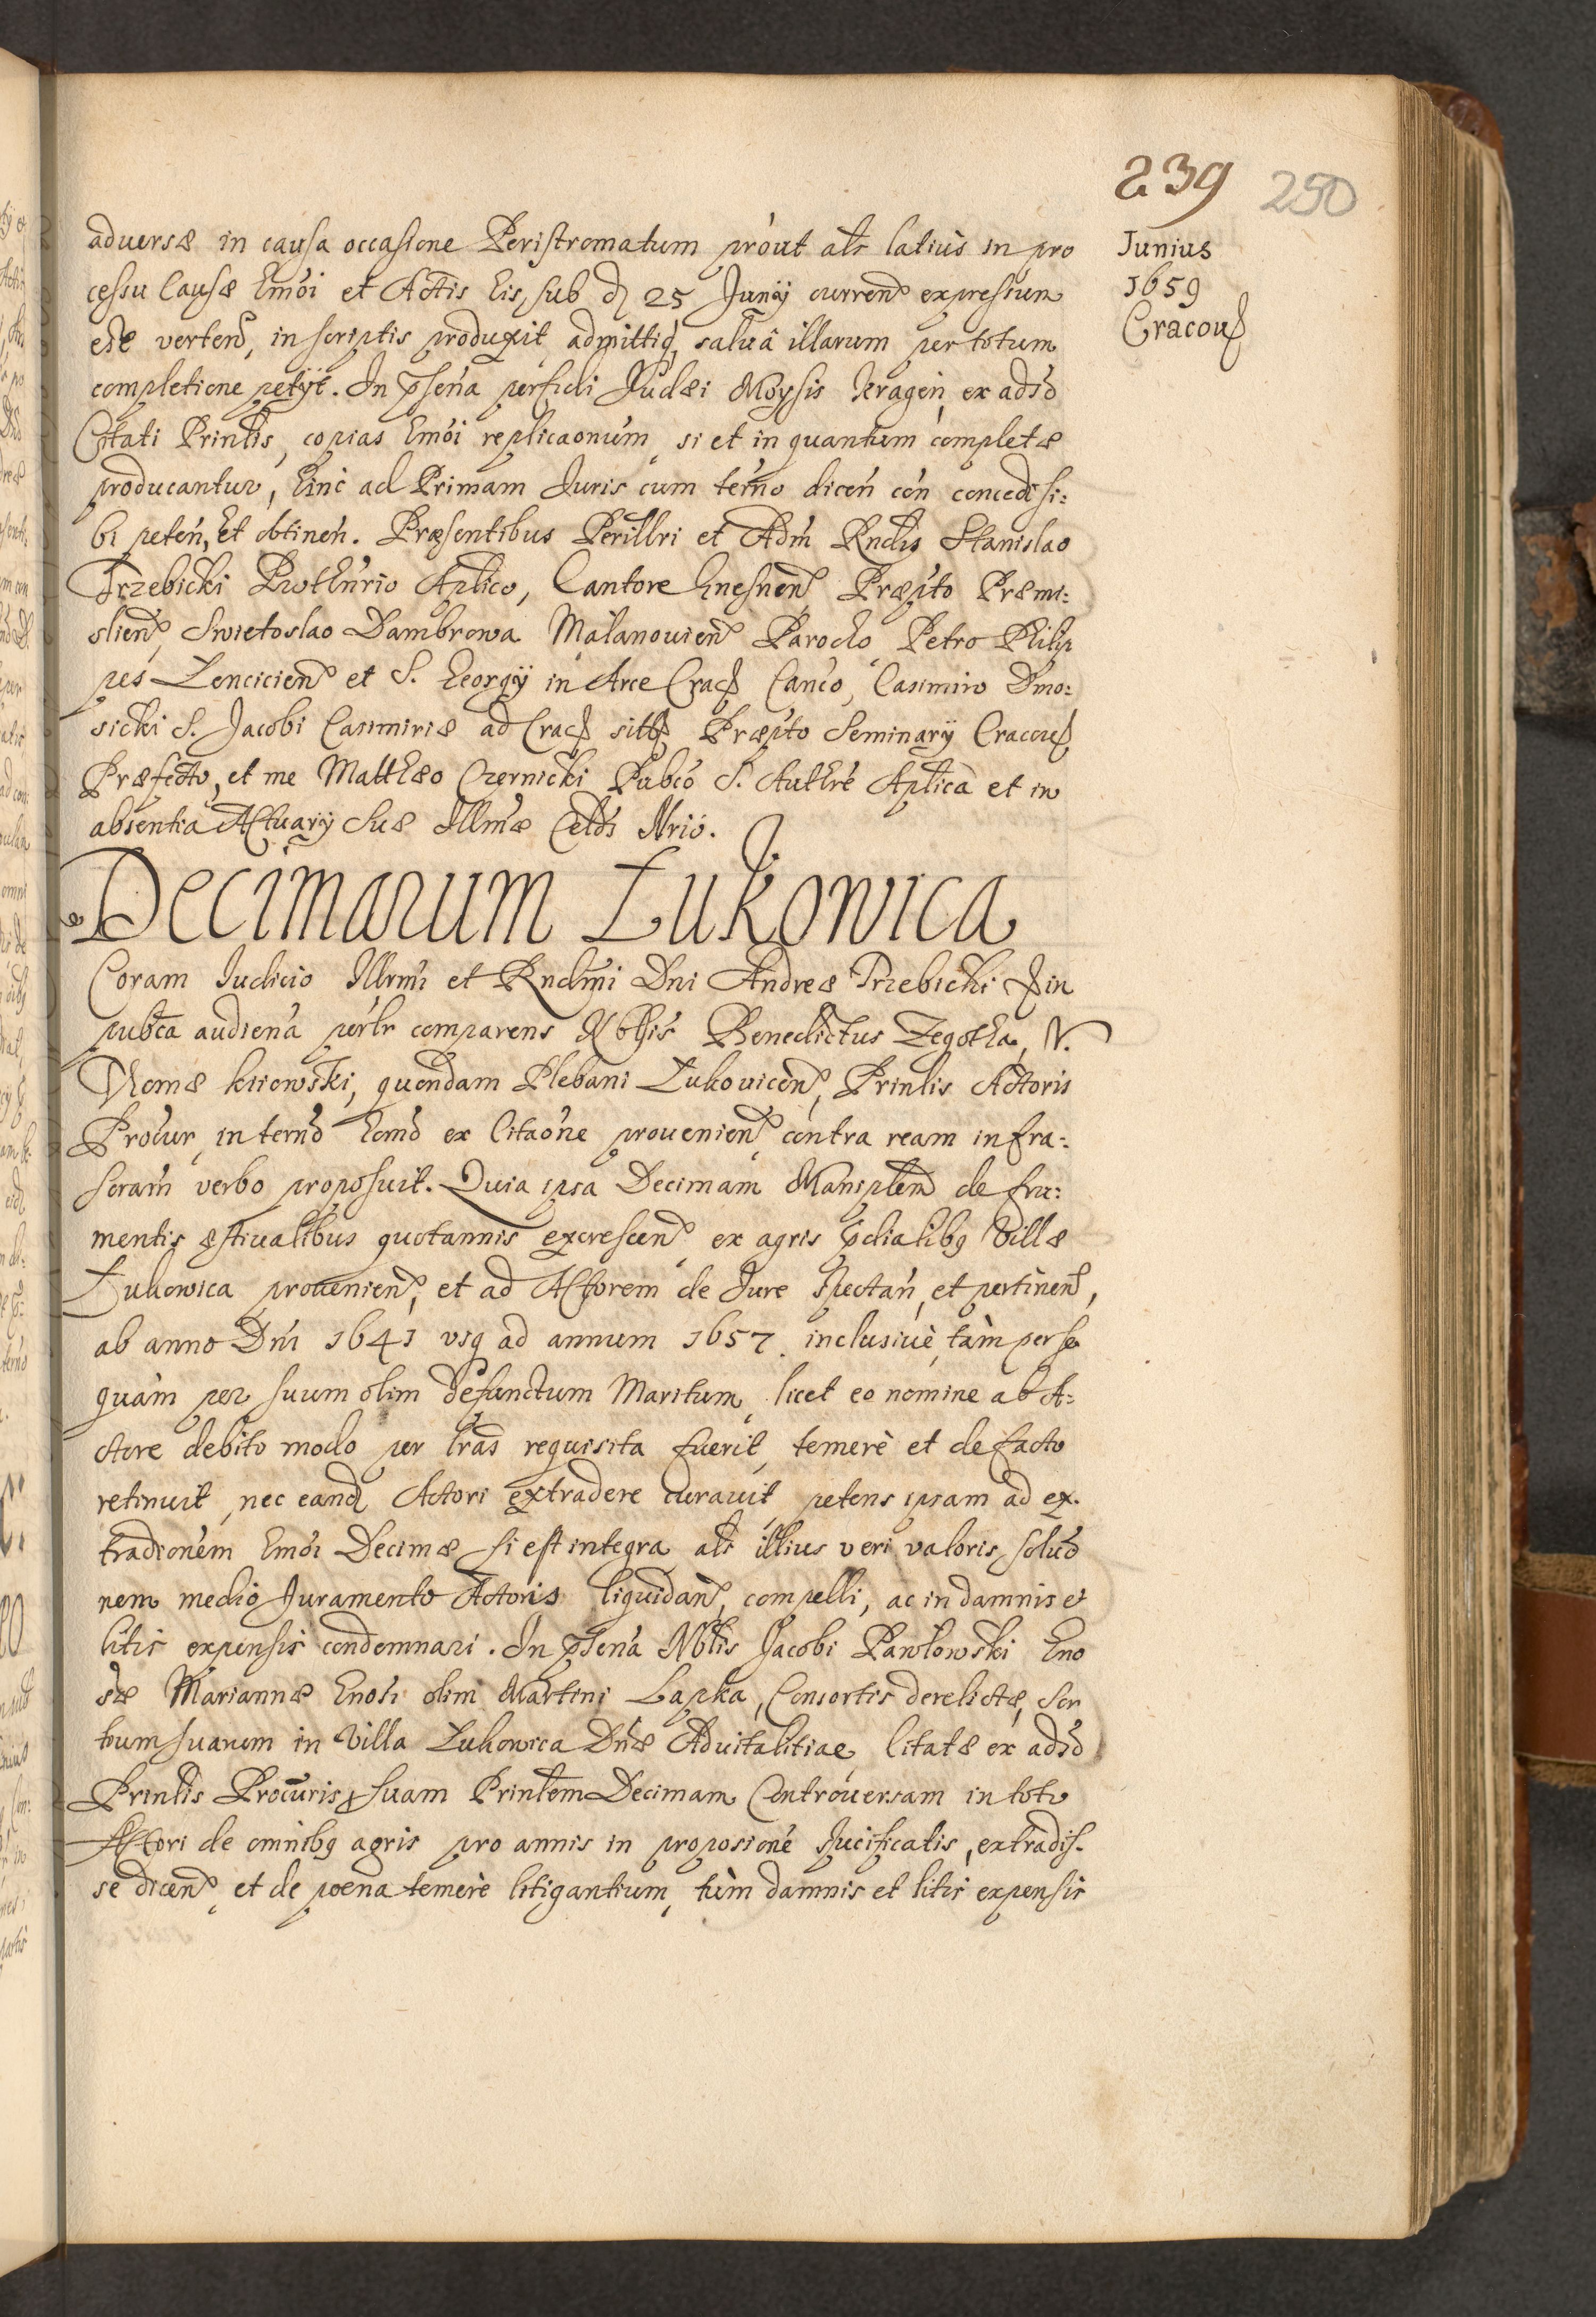 239 250
Junius
1659
Cracou
aduersæ in causa occasione Peristromatum prout als latius in pro
cessu Causæ hmoi et Actis his sub d 25 Junij curren expressum
est verten, in scriptis produxit admittiq, saluâ illarum per totum
completione petijt. In pñsena perfidi Judæi Moysis ex adso
Citati Prinlis, copias hmoi replicaonum si et in quantum completæ
producantur, hinc ad Primam Juris cum termo dicen con concedi si:
bi peten, et obtinen. Præsentibus Perillri et Adm Rndis Stanislao
Trzebicki Prothnrio Aplico, Cantore Gnesnen Præpto Præmi:
slien, Swietoslao Dambrowa Malanouien Parocho Petro Philip
pes Lencicien et S. Georgij in Arce Crac Canco, Casimiro Dmo:
sicki S. Jacobi Casimiriæ ad Crac sitt Præpto Seminarij Cracou
Præfecto, et me Matthæo Czernicki Pubco S. Authre Aplica et in
absentia Actuarij Suæ Illmæ Celds Nrio.
Decimarum Łukowica
Coram Judicio Illrmi et Rndmi Dni Andreæ Trzebicki in
pubca audiena perlr comparens Nobilis Benedictus Zegotha, V.
Thomæ kiiowski, quondam Plebani Łukouicen, Prinlis Actoris
Procur, in termo homo ex Citaone prouenien contra ream infra:
scram verbo proposuit. Quia ipsa Decimam Maniplem de fru:
mentis æstiualibus quotannis excrescen ex agris pdialibq Villæ
Łukowica prouenien, et ad Actorem de Jure spectan, et pertinen,
ab anno Dni 1641 vsq ad annum 1657. inclusiuè, tàm per se
quàm per suum olim defunctum Maritum, licet eo nomine ab A:
ctore debito modo per lras requisita fuerit, temerè et de facto
retinuit, nec eand Actori extradere curauit, petens ipsam ad ex.
tradionem hmoi Decimæ si est integra als illius veri valoris, soluo
nem medio Juramento Actoris liquidan, compelli, ac in damnis et
litis expensis condemnari. In pñsena Nblis Jacobi Pawłowski Gno
sæ Mariannæ Gnosi olim Martini Łapka, Consortis derelictæ, Sor
tium suarum in Villa Łukowica Dnæ Aduitalitiae, Citatæ ex adso
Prinlis Procuris, suam Prinlem Decimam Controuersam in toto
Actori de omnibq agris pro annis in proposione specificatis, extradis.
se dicen et de poena temerè litigantium, tùm damnis et litis expensis